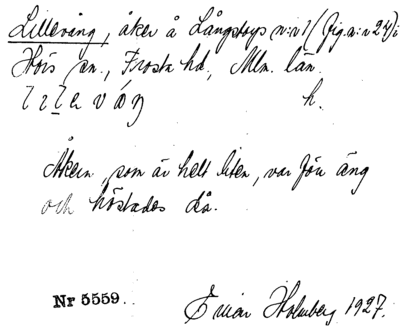 Lillevång, åker å Långstorps n:r 1 (fig. a: n 24) i
Hörs sn., Frosta hd., Mlm. län.
h.
Åkern, som är helt liten, var förr äng
och höstades då.
Nr 5559.
Einar Holmberg 1927.